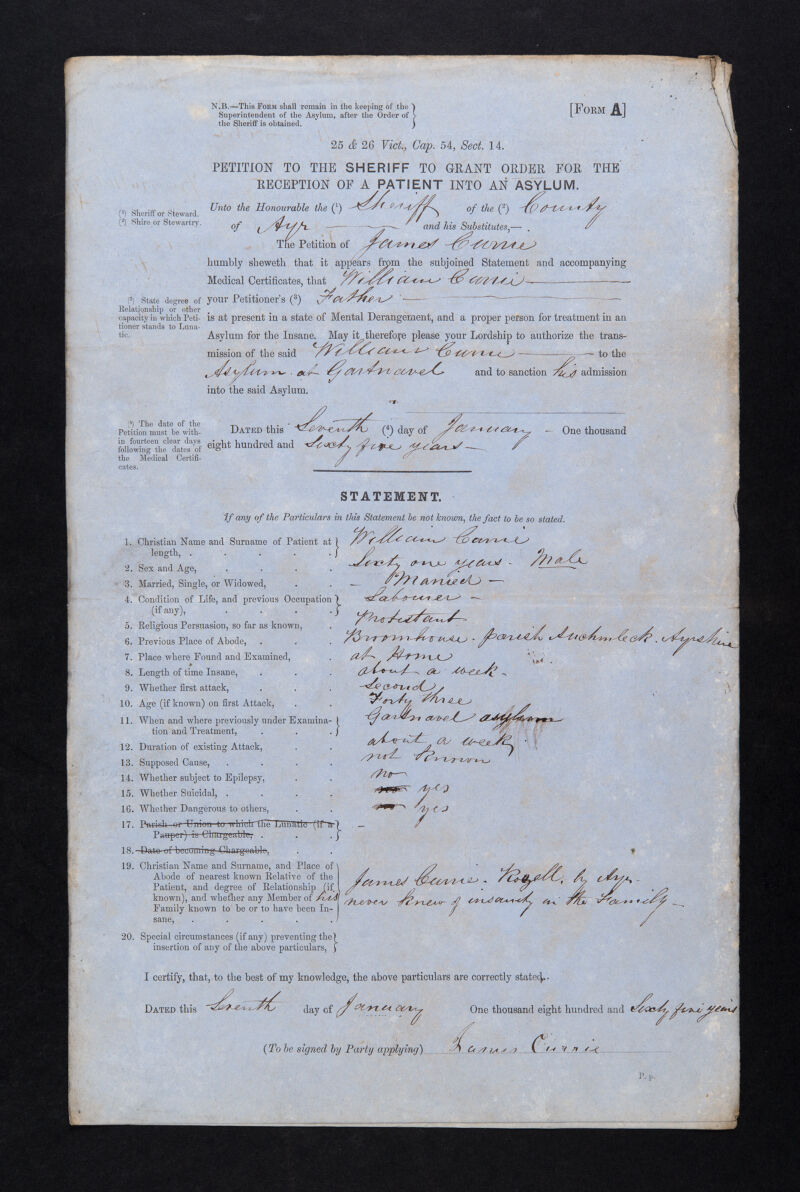 N.B.—This Form shall remain in the keeping of the
Superintendent of the Asylum, after the Order of
the Sheriff is obtained.
[Form A]
25 & 26 Vict., Cap. 54, Sect. 14.
PETITION TO THE SHERIFF TO GRANT ORDER FOR THE
RECEPTION OF A PATIENT INTO AN ASYLUM.
(1) Sheriff or Steward.
(2) Shire or Stewartry.
Unto the Honourable the (1) Sheriff of the (2) County
of Ayr and his Substitutes,—
The Petition of James Currie
humbly sheweth that it appears from the subjoined Statement and accompanying
Medical Certificates, that William Currie
(3) State degree of
Relationship or other
capacity in which Peti-
tioner stands to Luna-
tic.
your Petitioner's (3) Father
is at present in a state of Mental Derangement, and a proper person for treatment in an
Asylum for the Insane. May it therefore please your Lordship to authorize the trans-
mission of the said William Currie to the
Asylum at Gartnavel and to sanction his admission
into the said Asylum.
(4) The date of the
Petition must be with-
in fourteen clear days
following the dates of
the Medical Certifi-
cates.
Dated this Seventh (4) day of January - One thousand
eight hundred and Sixty five years —
STATEMENT.
If any of the Particulars in this Statement be not known, the fact to be so stated.
1. Christian Name and Surname of Patient at
length, . William Currie
2. Sex and Age, Sixty one years. Male
3. Married, Single, or Widowed, - Married -
4. Condition of Life, and previous Occupation
(if any), Labourer -
5. Religious Persuasion, so far as known, Protestant
6. Previous Place of Abode, Broomhouse. parish Auchinleck. Ayrshire
7. Place where Found and Examined, at Home
8. Length of time Insane, about a week -
9. Whether first attack, Second
10. Age (if known) on first Attack, Forty three
11. When and where previously under Examina-
tion and Treatment, Gartnavel asylum
12. Duration of existing Attack, about a week
13. Supposed Cause, not known
14. Whether subject to Epilepsy, no
15. Whether Suicidal, no yes
16. Whether Dangerous to others, no yes
17. Parish or Union to which the Lunatic (if a
Pauper) is Chargeable, -
18. Date of becoming Chargeable,
19. Christian Name and Surname, and Place of
Abode of nearest known Relative of the
Patient, and degree of Relationship (if
known), and whether any Member of his
Family known to be or to have been In-
sane,
James Currie. by Ayr.
never knew of insanity in the Family -
20. Special circumstances (if any) preventing the
insertion of any of the above particulars,
I certify, that, to the best of my knowledge, the above particulars are correctly stated.
Dated this Seventh day of January One thousand eight hundred and Sixty five years
(To be signed by Party applying) James Currie